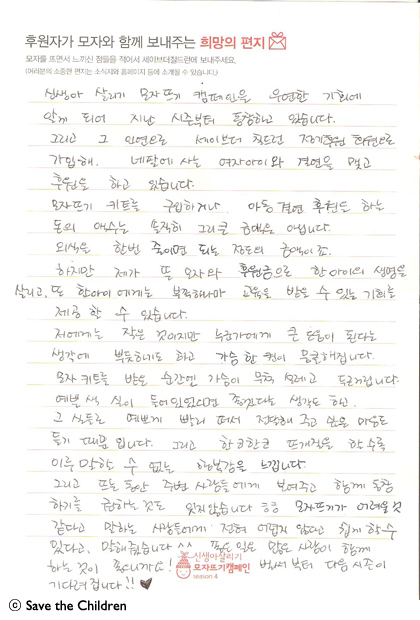 후원자가 모자와 함께 보내주는 희망의 편지
모자를 뜨면서 느끼신 점들을 적어서 세이브더칠드런에 보내주세요.
(여러분의 소중한 편지는 소식지와 홈페이지 등에 소개될 수 있습니다.)
신생아 살리기 모자뜨기 캠페인을 우연한 기회에
알게 되어 지난 시즌부터 동참하고 있습니다.
그리고 그 인연으로 세이브더 칠드런 정기후원 회원으로
가입해. 네팔에 사는 여자아이와 결연을 맺고
후원을 하고 있습니다.
모자뜨기 키트를 구입하거나 아동 결연 후원을 하는
돈의 액수는 솔직히 그리 큰 금액은 아닙니다.
외식을 한번 줄이면 되는 정도의 금액이죠.
하지만 제가 뜬 모자와 후원금으로 한 아이의 생명을
살리고, 또 한아이에게는 부족하나마 교육을 받을 수 있는 기회를
제공 할 수 있습니다.
저에게는 작은 것이지만 누군가에게 큰 도움이 된다는
생각에 뿌듯하기도 하고 가슴 한 켠이 뭉클해집니다.
모자 키트를 받은 순간엔 가슴이 무척 설레고 두근거립니다.
예쁜 색 실이 들어있었으면 좋겠다는 생각도 하고.
그 실들로 예쁘게 빨리 떠서 전달해 주고 싶은 마음도
들기 때문 입니다. 그리고 한코한코 뜨개질을 할수록
이루 말할 수 없는 행복감을 느낍니다.
그리고 뜨는 동안 주변 사람들에게 보여주고 함께 동참
하기를 권하는 것도 잊지않습니다 ㅎㅎ 모자뜨기가 어려울 것
같다고 말하는 사람들에게 전혀 어렵지 않다고 쉽게 할 수
있다고, 말해줬습니다 ^^ 좋은 일은 많은 사람이 함께
하는 것이 좋으니까요! 벌써부터 다음 시즌이
기다려 집니다!! ♥
신생아살리기
모자뜨기캠페인
season 4
ⓒ Save the Children